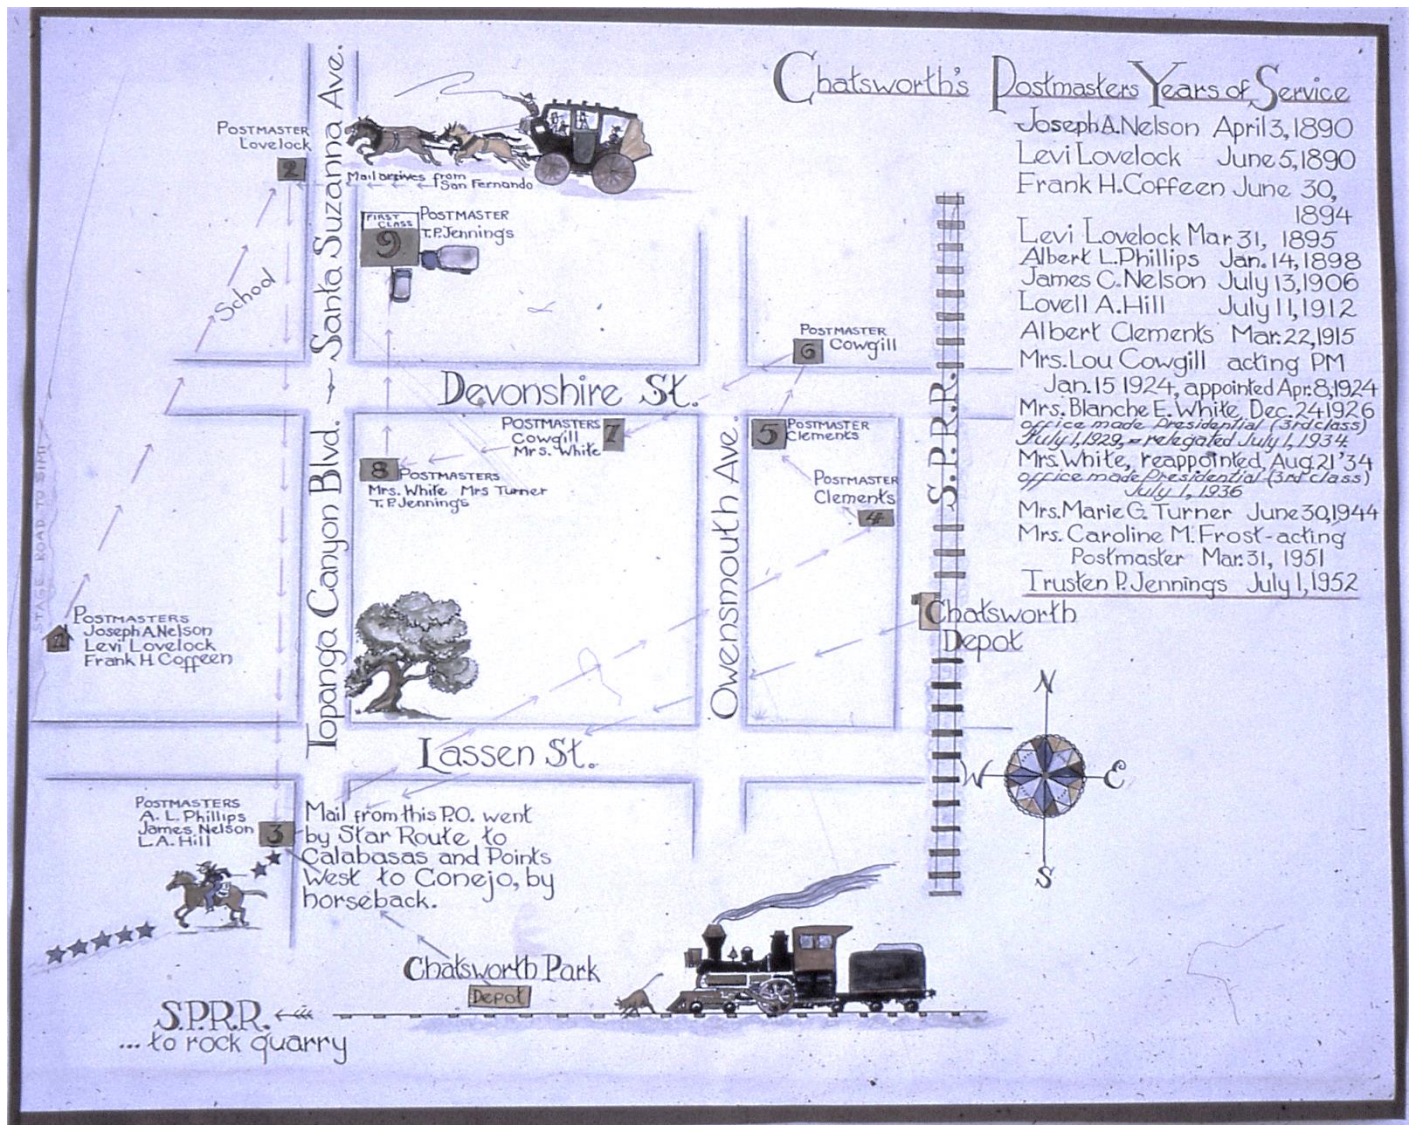 Chatsworth's Postmasters Years of Service
Joseph A. Nelson April 3, 1890
Levi Lovelock June 5, 1890
Frank H. Coffeen June 30,
1894
Levi Lovelock Mar 31, 1895
Albert L. Phillips Jan. 14, 1898
James C. Nelson July 13, 1906
Lovell A. Hill July 11, 1912
Albert Clements Mar. 22, 1915
Mrs. Lou Cowgill acting PM
Jan. 15 1924, appointed Apr. 8, 1924
Mrs. Blanche E. White, Dec. 24 1926
office made Presidential (3rd class)
July 1, 1929, - relegated July 1, 1934
Mrs. White, reappointed, Aug. 21 '34
office made Presidential (3rd class)
July 1, 1936
Mrs. Marie G. Turner June 30, 1944
Mrs. Caroline M. Frost - acting
Postmaster Mar. 31, 1951
Trusten P. Jennings July 1, 1952
Santa Suzanna Ave.
POSTMASTER
Lovelock
2
Mail arrives from
San Fernando
FIRST
CLASS
9
POSTMASTER
T.P. Jennings
School
POSTMASTER
Cowgill
6
Devonshire St.
POSTMASTERS
Cowgill
Mrs. White
7
5
POSTMASTER
Clements
8
POSTMASTERS
Mrs. White Mrs Turner
T.P. Jennings
POSTMASTER
Clements
4
S.P.R.R.
Topanga Canyon Blvd.
Owensmouth Ave.
STAGE ROAD TO SIMI
1
POSTMASTERS
Joseph A. Nelson
Levi Lovelock
Frank H Coffeen
Chatsworth
Depot
Lassen St.
N
W
E
S
POSTMASTERS
A. L. Phillips
James Nelson
L.A. Hill
3
Mail from this P.O. went
by Star Route to
Calabasas and Points
West to Conejo, by
horseback.
Chatsworth Park
Depot
S.P.R.R.
... to rock quarry